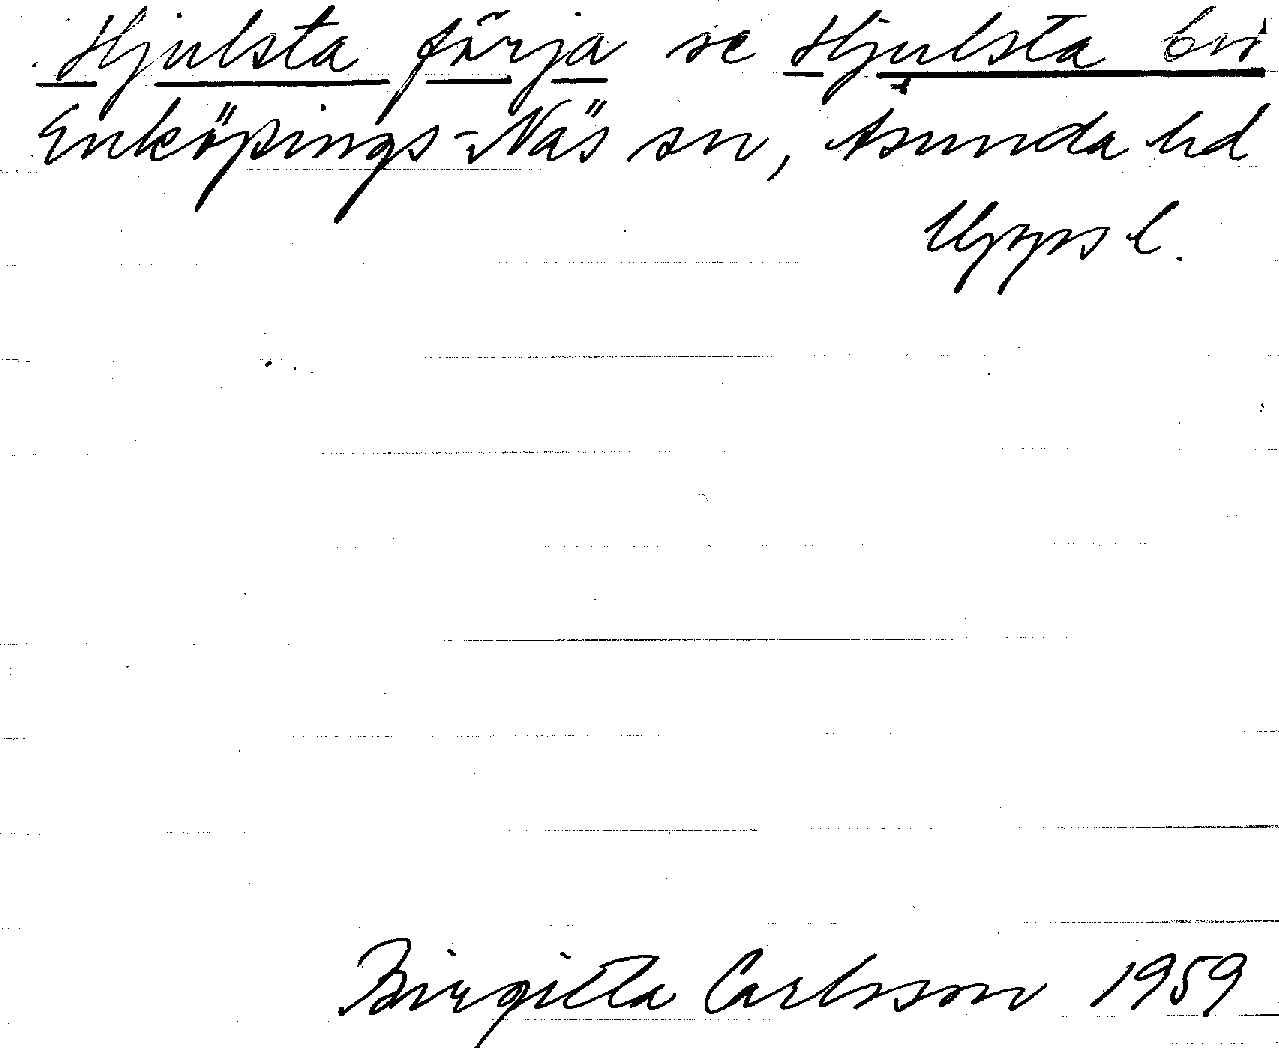 Hjulsta färja se Hjulsta bro
Enköpings-Näs sn, Åsunda hd
Upps l.
Birgitta Carlsson 1959